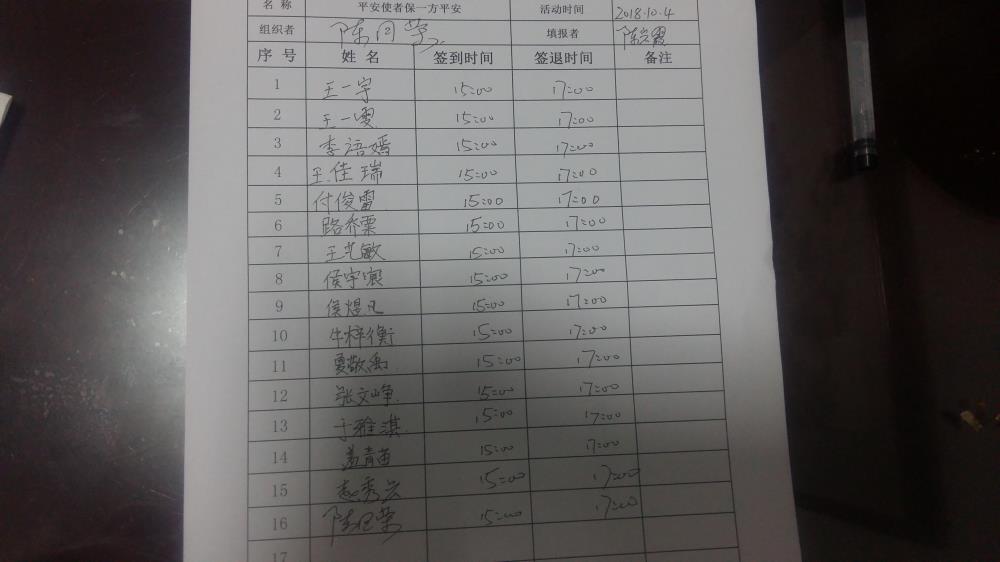 名 称 平安使者保一方平安 活动时间 2018.10.4
组织者 陈同荣 填报者 陈岩霞
序 号 姓 名 签到时间 签退时间 备注
1 王一宇 15:00 17:00
2 王一雯 15:00 17:00
3 李语嫣 15:00 17:00
4 王佳瑞 15:00 17:00
5 付俊雷 15:00 17:00
6 路乔栗 15:00 17:00
7 王艺敏 15:00 17:00
8 侯宇宸 15:00 17:00
9 侯煜凡 15:00 17:00
10 牛梓衡 15:00 17:00
11 夏敬禹 15:00 17:00
12 张文峥 15:00 17:00
13 于雅淇 15:00 17:00
14 青苗 15:00 17:00
15 赵秀云 15:00 17:00
16 陈同荣 15:00 17:00
17